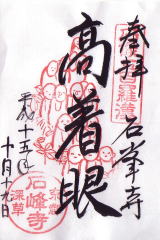 奉拝
石峯寺
高着眼
平成十五年
十月十九日
京都
石峰寺
深草